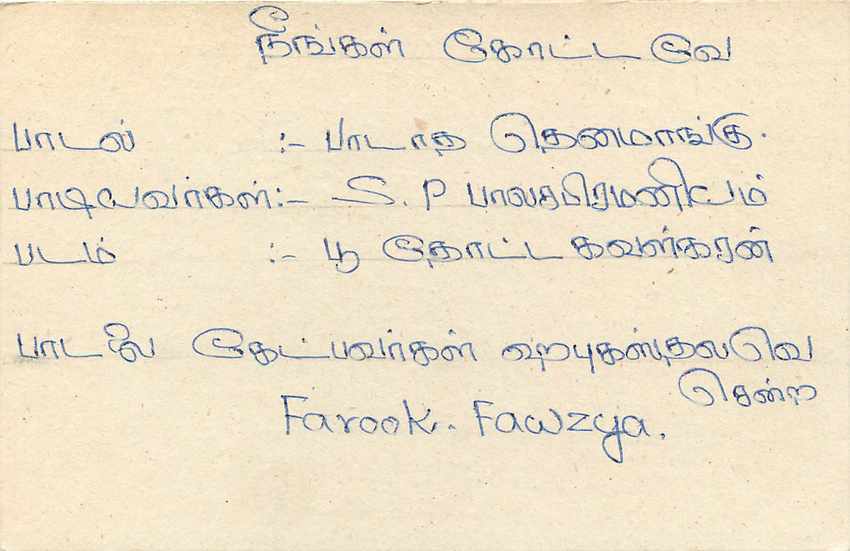 நீங்கள் கோட்டவே
பாடல் :- பாடாத தெனமாங்கு.
பாடியவர்கள்:- S. P பாலசுபிரமணியம்
படம் :- பூ தோட்ட கவள்கரன்
பாடலை கேட்பவர்கள் ஹபுகஸ்தலவெ
சென்ற
Farook. Fawzya.